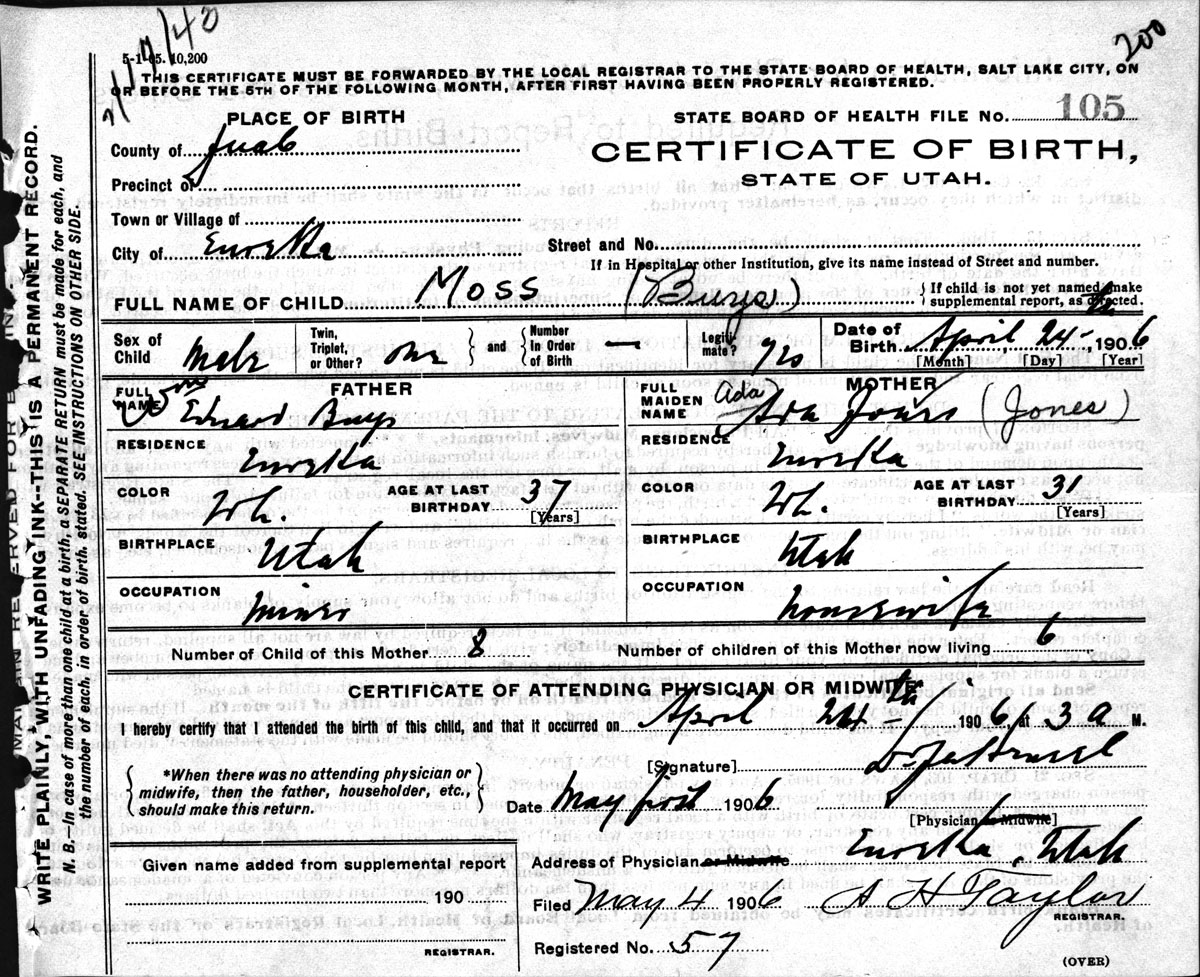 2/17/40
200
5-1-05. 10,200
THIS CERTIFICATE MUST BE FORWARDED BY THE LOCAL REGISTRAR TO THE STATE BOARD OF HEALTH, SALT LAKE CITY, ON
OR BEFORE THE 5TH OF THE FOLLOWING MONTH, AFTER FIRST HAVING BEEN PROPERLY REGISTERED.
WRITE PLAINLY WITH UNFADING INK--THIS IS A PERMANENT RECORD.
N. B.--In case of more than one child at a birth, a SEPARATE RETURN must be made for each, and
the number of each, in order of birth, stated. SEE INSTRUCTIONS ON OTHER SIDE.
PLACE OF BIRTH
County of Juab
Precinct of
Town or Village of
City of Eureka
STATE BOARD OF HEALTH FILE NO. 105
CERTIFICATE OF BIRTH,
STATE OF UTAH.
Street and No.
If in Hospital or other Institution, give its name instead of Street and number.
FULL NAME OF CHILD Moss (Buys)
If child is not yet named make
supplemental report, as directed.
Sex of Child Male
Twin, Triplet, or Other? one
and
Number In Order of Birth —
Legitimate? yes
Date of Birth April 24th 1906
[Month] [Day] [Year]
FATHER
FULL NAME Edward Buys
RESIDENCE
Eureka
COLOR Wh.
AGE AT LAST BIRTHDAY 37
[Years]
BIRTHPLACE
Utah
OCCUPATION
miner
MOTHER
FULL MAIDEN NAME Ada Ada Jones (Jones)
RESIDENCE
Eureka
COLOR Wh.
AGE AT LAST BIRTHDAY 31
[Years]
BIRTHPLACE
Utah
OCCUPATION
housewife
Number of Child of this Mother 8
Number of children of this Mother now living 6
CERTIFICATE OF ATTENDING PHYSICIAN OR MIDWIFE
I hereby certify that I attended the birth of this child, and that it occurred on April 24th 1906, at 3 a M.
*When there was no attending physician or
midwife, then the father, householder, etc.,
should make this return.
[Signature]
Date May first 1906
[Physician or Midwife]
Address of Physician or Midwife Eureka, Utah
Given name added from supplemental report
190
REGISTRAR.
Filed May 4 1906 A H Taylor
REGISTRAR.
Registered No. 57
(OVER)